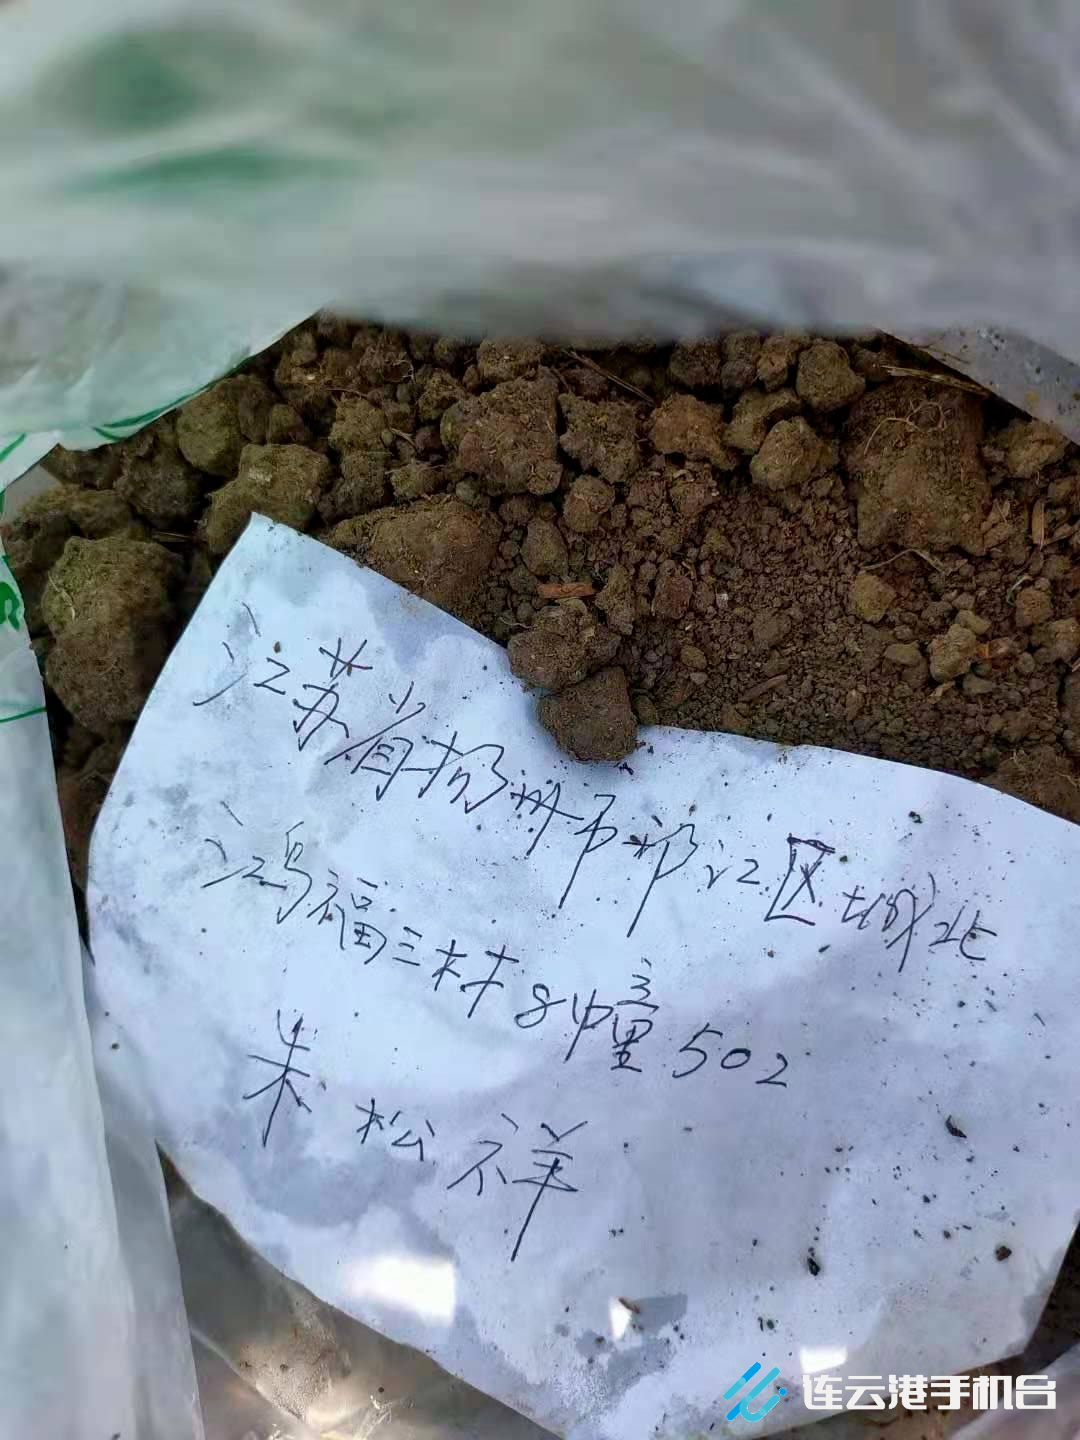 江苏省扬州市邗江区城北
鸿福三村8幢502
朱松祥
连云港手机台